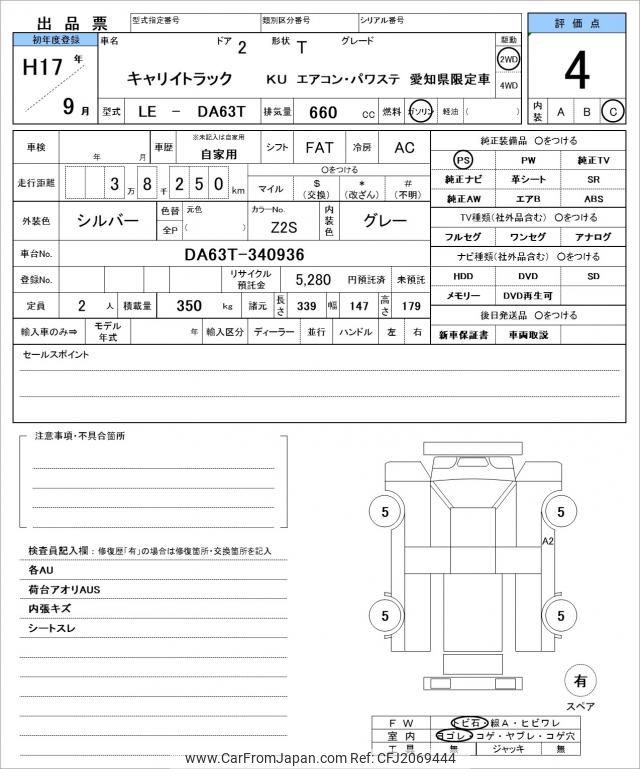 出品票 型式指定番号 類別区分番号 シリアル番号 評価点
初年度登録 車名 ドア 2 形状 T グレード 駆動
H17 年 キャリイトラック KU エアコン・パワステ 愛知県限定車 2WD 4
9 月 4WD
型式 LE － DA63T 排気量 660 cc 燃料 ガソリン 軽油 ( ) 内装 A B C
車検 年 月 車歴 ※未記入は自家用 自家用 シフト FAT 冷房 AC 純正装備品 ○をつける
PS PW 純正TV
走行距離 3 万 8 千 2 5 0 km ○をつける
マイル $ (交換) * (改ざん) # (不明) 純正ナビ 革シート SR
純正AW エアB ABS
外装色 シルバー 色替 元色 カラーNo. 内装色 グレー TV種類(社外品含む) ○をつける
全P ( ) Z2S フルセグ ワンセグ アナログ
車台No. DA63T-340936 ナビ種類(社外品含む) ○をつける
登録No. リサイクル預託金 5,280 円預託済 未預託 HDD DVD SD
定員 2 人 積載量 350 kg 諸元 長さ 339 幅 147 高さ 179 メモリー DVD再生可
後日発送品 ○をつける
輸入車のみ⇒ モデル年式 年 輸入区分 ディーラー 並行 ハンドル 左 右 新車保証書 車両取説
セールスポイント
注意事項・不具合箇所
検査員記入欄：修復歴「有」の場合は修復箇所・交換箇所を記入
各AU
荷台アオリAUS
内張キズ
シートスレ
5 5
A2
5 5
有
スペア
FW トビ石・線A・ヒビワレ
室内 ヨゴレ・コゲ・ヤブレ・コゲ穴
工具 無 ジャッキ 無
www.CarFromJapan.com Ref: CFJ2069444